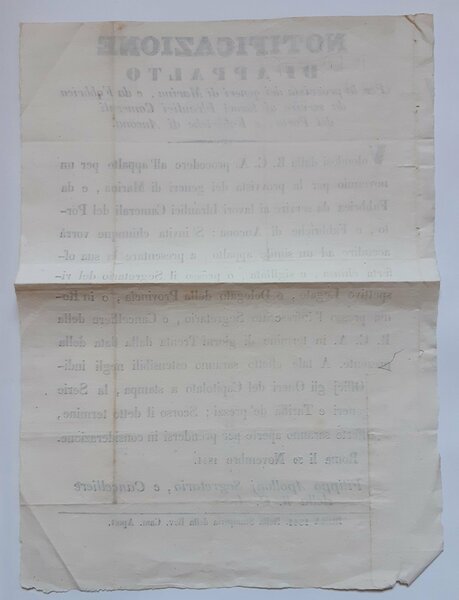 NOTIFICAZIONE
D'APPALTO
Per la provvista dei generi di Marina, e da Fabbrica
da servire ai lavori Idraulici Camerali
del Porto, e Fabbriche di Ancona.
Volendosi dalla R. C. A. procedere all'appalto per un
novennio per la provvista dei generi di Marina, e da
Fabbrica da servire ai lavori Idraulici Camerali del Por-
to, e Fabbriche di Ancona: S'invita chiunque vorrà
accudire ad un simile appalto, a presentare la sua of-
ferta chiusa, e sigillata, o presso il Segretario del ri-
spettivo Legato, o Delegato della Provincia, o in Ro-
ma presso l'infrascritto Segretario, e Cancelliere della
R. C. A. in termine di giorni Trenta dalla data della
presente. A tale effetto saranno ostensibili negli indi-
Officj gli Oneri del Capitolato a stampa, la Serie
generi e Tariffa de' prezzi; Scorso il detto termine,
saranno aperte per prendersi in considerazione.
Roma li Novembre
Filippo Apollonj Segretario, e Cancelliere
della R. C. A.
ROMA Nella Stamperia della Rev. Cam. Apost.